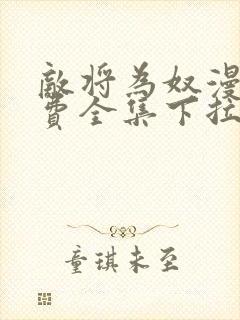 敵将為奴漫
費全集下拉
童琪未至